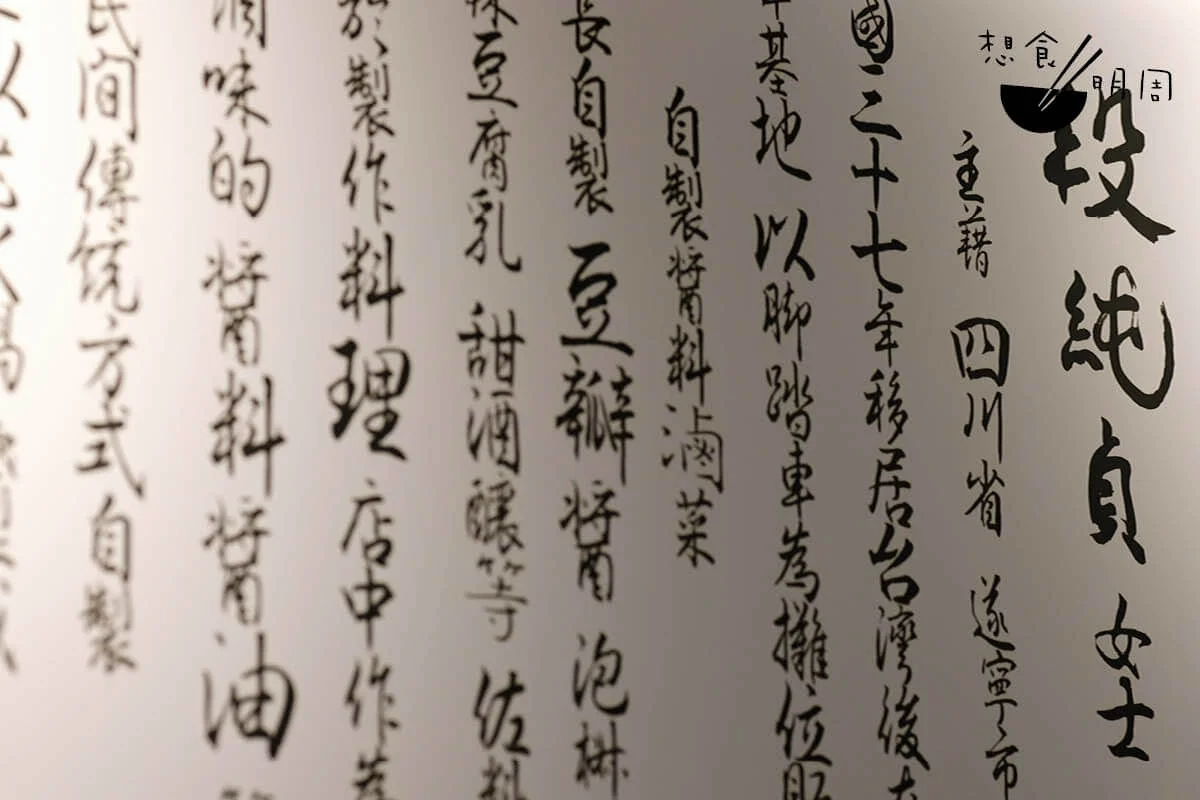 想食明周
段純貞女士
主藉 四川省 遂寧市
國三十七年移居台灣後
基地 以脚踏車為攤位
自製醬料滷菜
長自製豆瓣醬 泡椒
豆腐乳 甜酒釀等 佐料
於製作料理 店中作
味的 醬料醬油
民間傳統方式自製
以